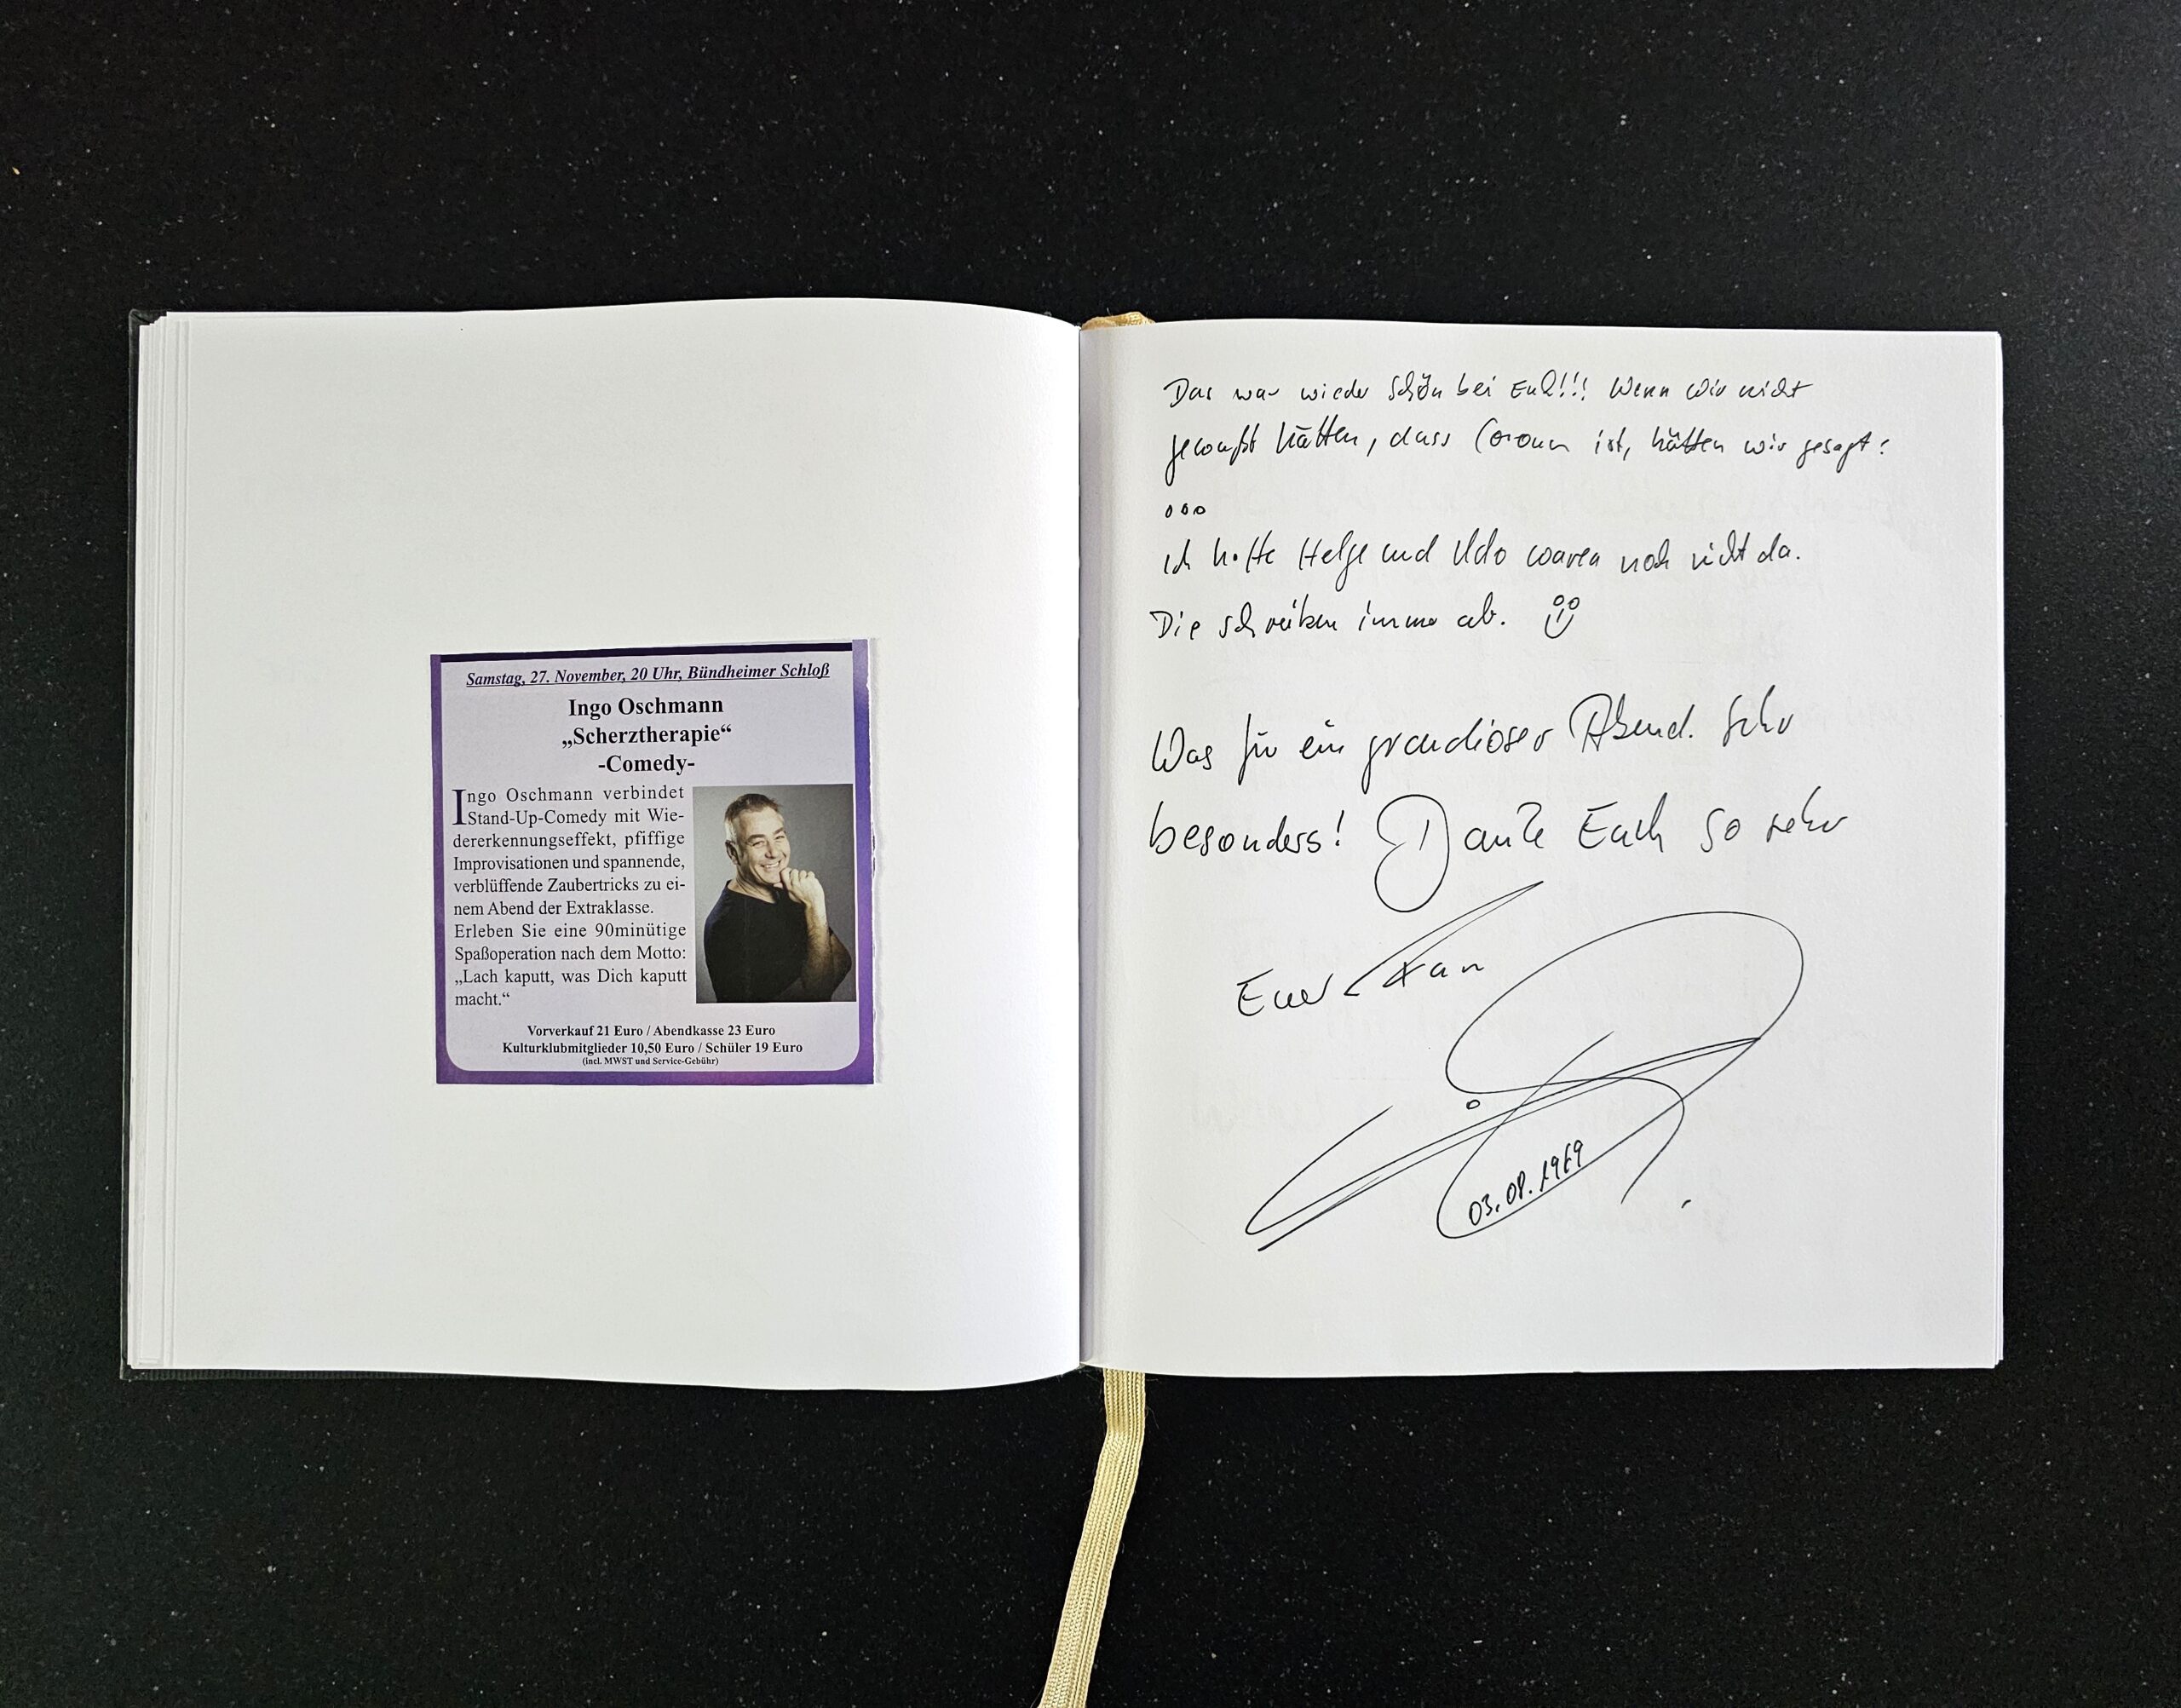 Samstag, 27. November, 20 Uhr, Bündheimer Schloß
Ingo Oschmann
„Scherztherapie“
-Comedy-
Ingo Oschmann verbindet
Stand-Up-Comedy mit Wie-
dererkennungseffekt, pfiffige
Improvisationen und spannende,
verblüffende Zaubertricks zu ei-
nem Abend der Extraklasse.
Erleben Sie eine 90minütige
Spaßoperation nach dem Motto:
„Lach kaputt, was Dich kaputt
macht.“
Vorverkauf 21 Euro / Abendkasse 23 Euro
Kulturklubmitglieder 10,50 Euro / Schüler 19 Euro
(incl. MWST und Service-Gebühr)
Das war wieder schön bei Euch!!! Wenn wir nicht
gewußt hätten, dass Corona ist, hätten wir gesagt:
...
Ich hoffe Helge und Udo waren noch nicht da.
Die schreiben immer ab.
Was für ein grandioser Abend. Sehr
besonders! Danke Euch so sehr
Euer
03.08.1969